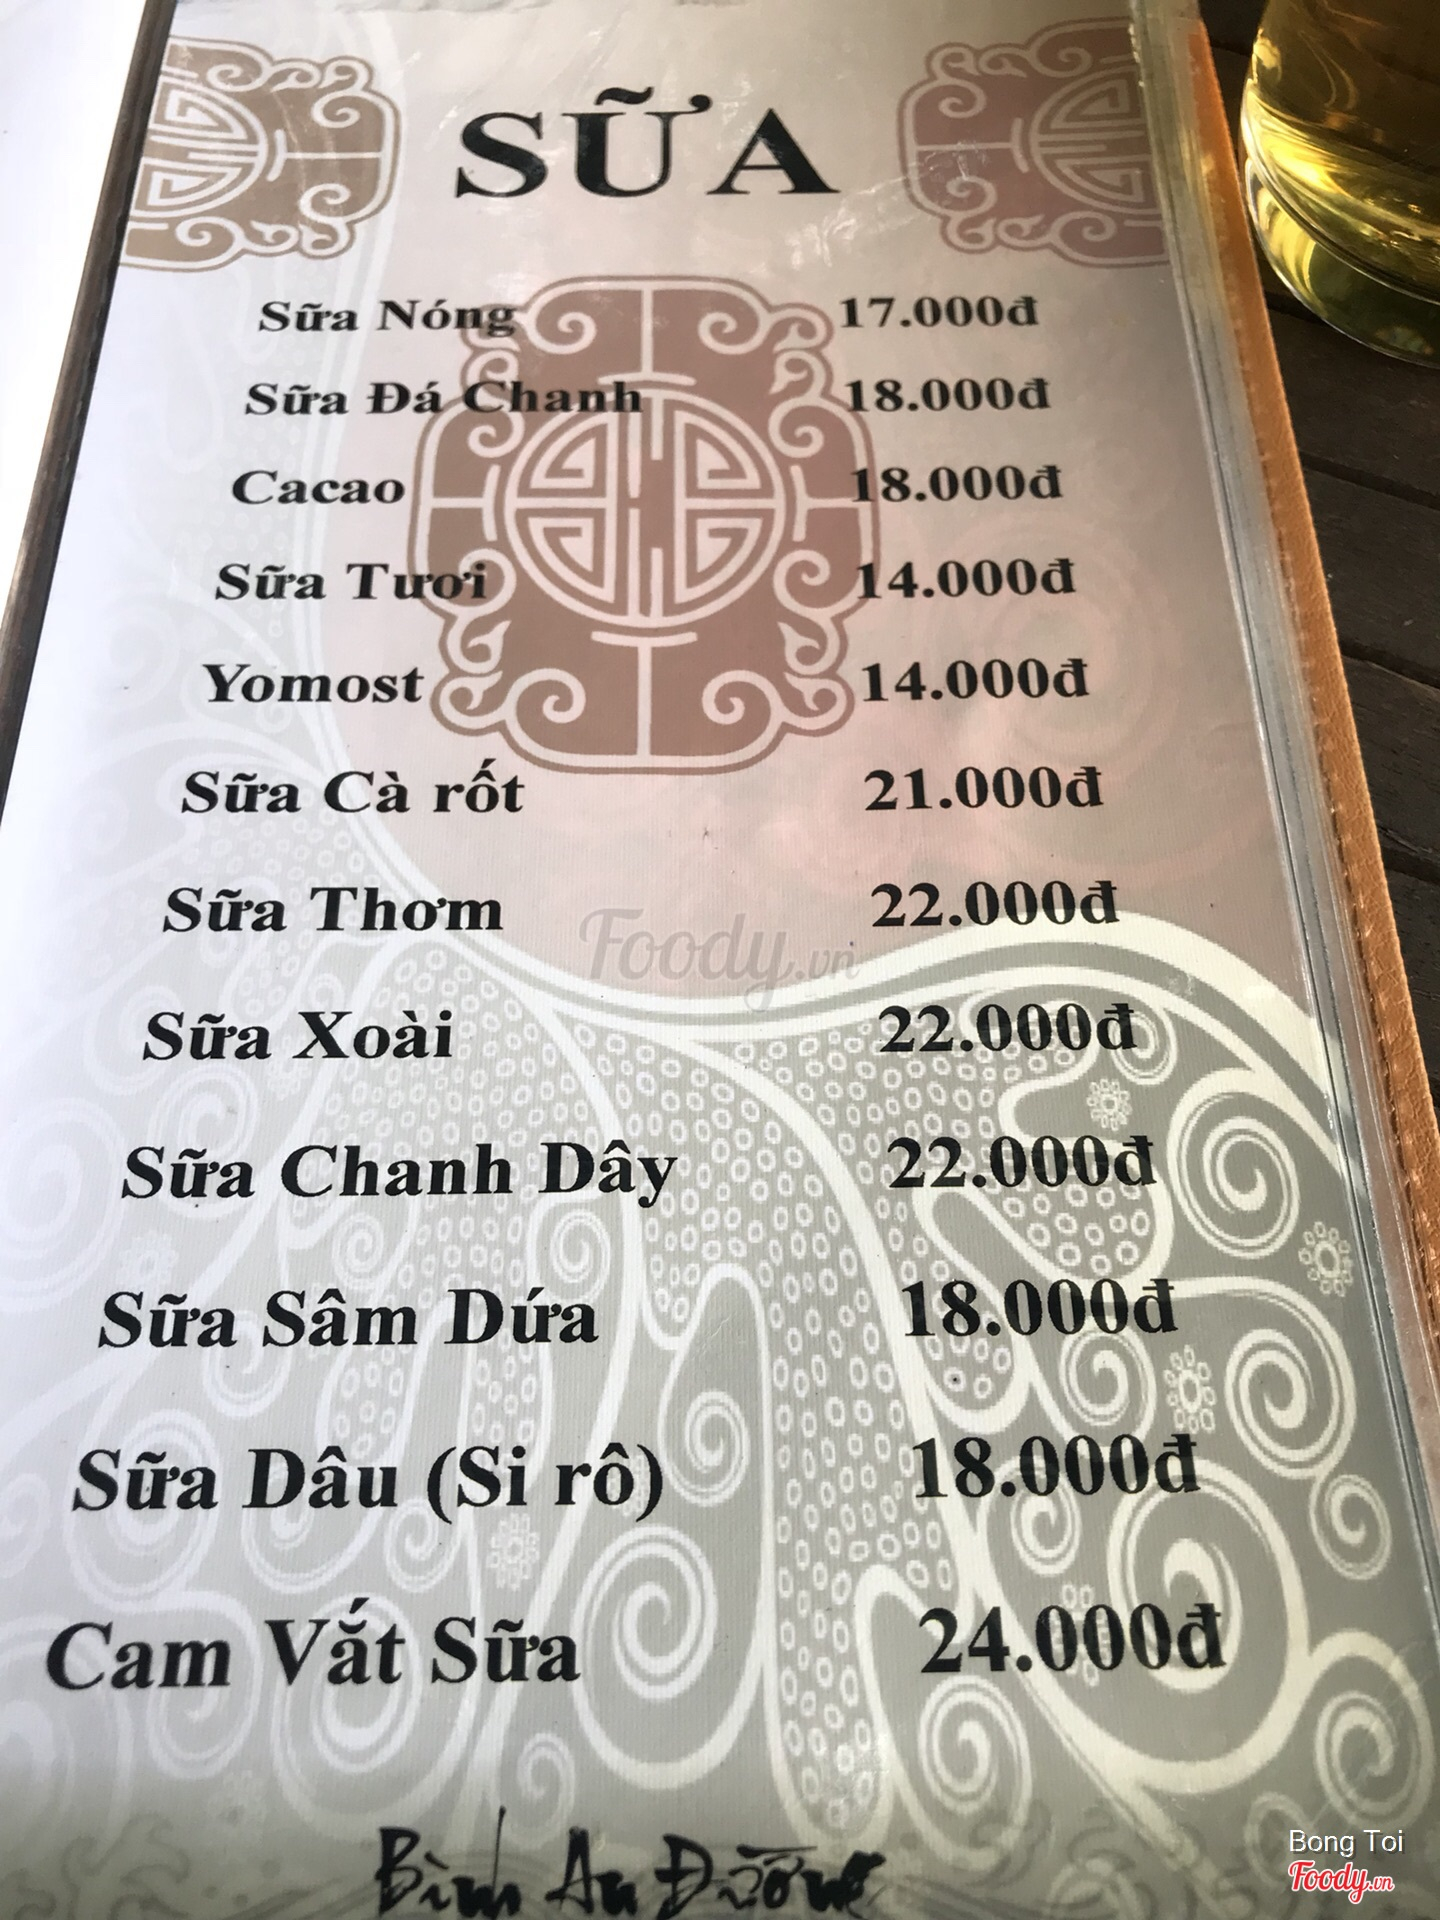 SỮA
Sữa Nóng 17.000đ
Sữa Đá Chanh 18.000đ
Cacao 18.000đ
Sữa Tươi 14.000đ
Yomost 14.000đ
Sữa Cà rốt 21.000đ
Sữa Thơm 22.000đ
Foody.vn
Sữa Xoài 22.000đ
Sữa Chanh Dây 22.000đ
Sữa Sâm Dứa 18.000đ
Sữa Dâu (Si rô) 18.000đ
Cam Vắt Sữa 24.000đ
Bình An Đường
Bong Toi
Foody.vn